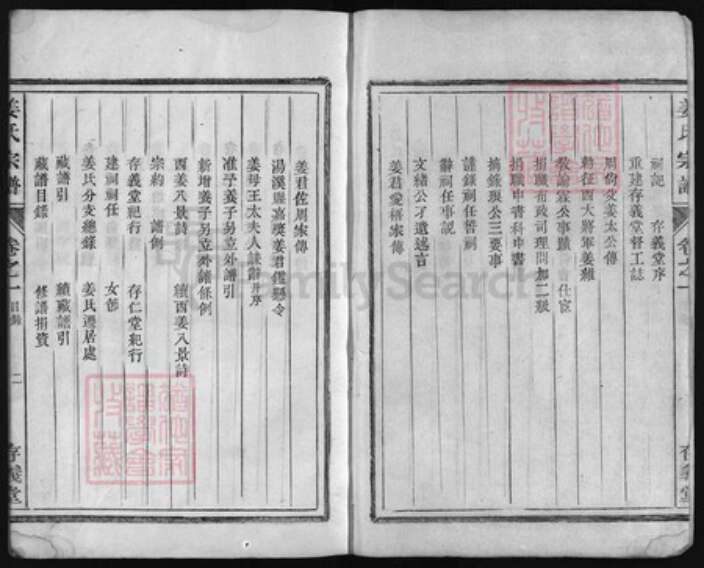 姜氏宗譜
卷之一
存義堂
祠記 存義堂序
重建存義堂督工誌
周尚父姜太公傳
韩征西大將軍姜維
敕諭
公事蹟
仕宦
捐職布政司理問加二級
捐職中書科中書
摘錄
公三要事
謹錄祠任晉祠
辭祠任事說
文緒公才遺逃言
姜君愛梧家傳
姜君佐周家傳
湯溪縣嘉獎姜君鑑懸令
姜母王太夫人誄辭并序
准予養子另立外譜引
新增養子另立外譜條例
酉姜八景詩 續酉姜八景詩
宗約 譜例
存義堂祀行 存仁堂祀行
建祠祠任 女儀
姜氏分支總錄 姜氏遷居處
藏譜引 續藏譜引
藏譜目錄 修譜捐資
姜氏宗譜
卷之一
目錄
二
存義堂
FamilySearch